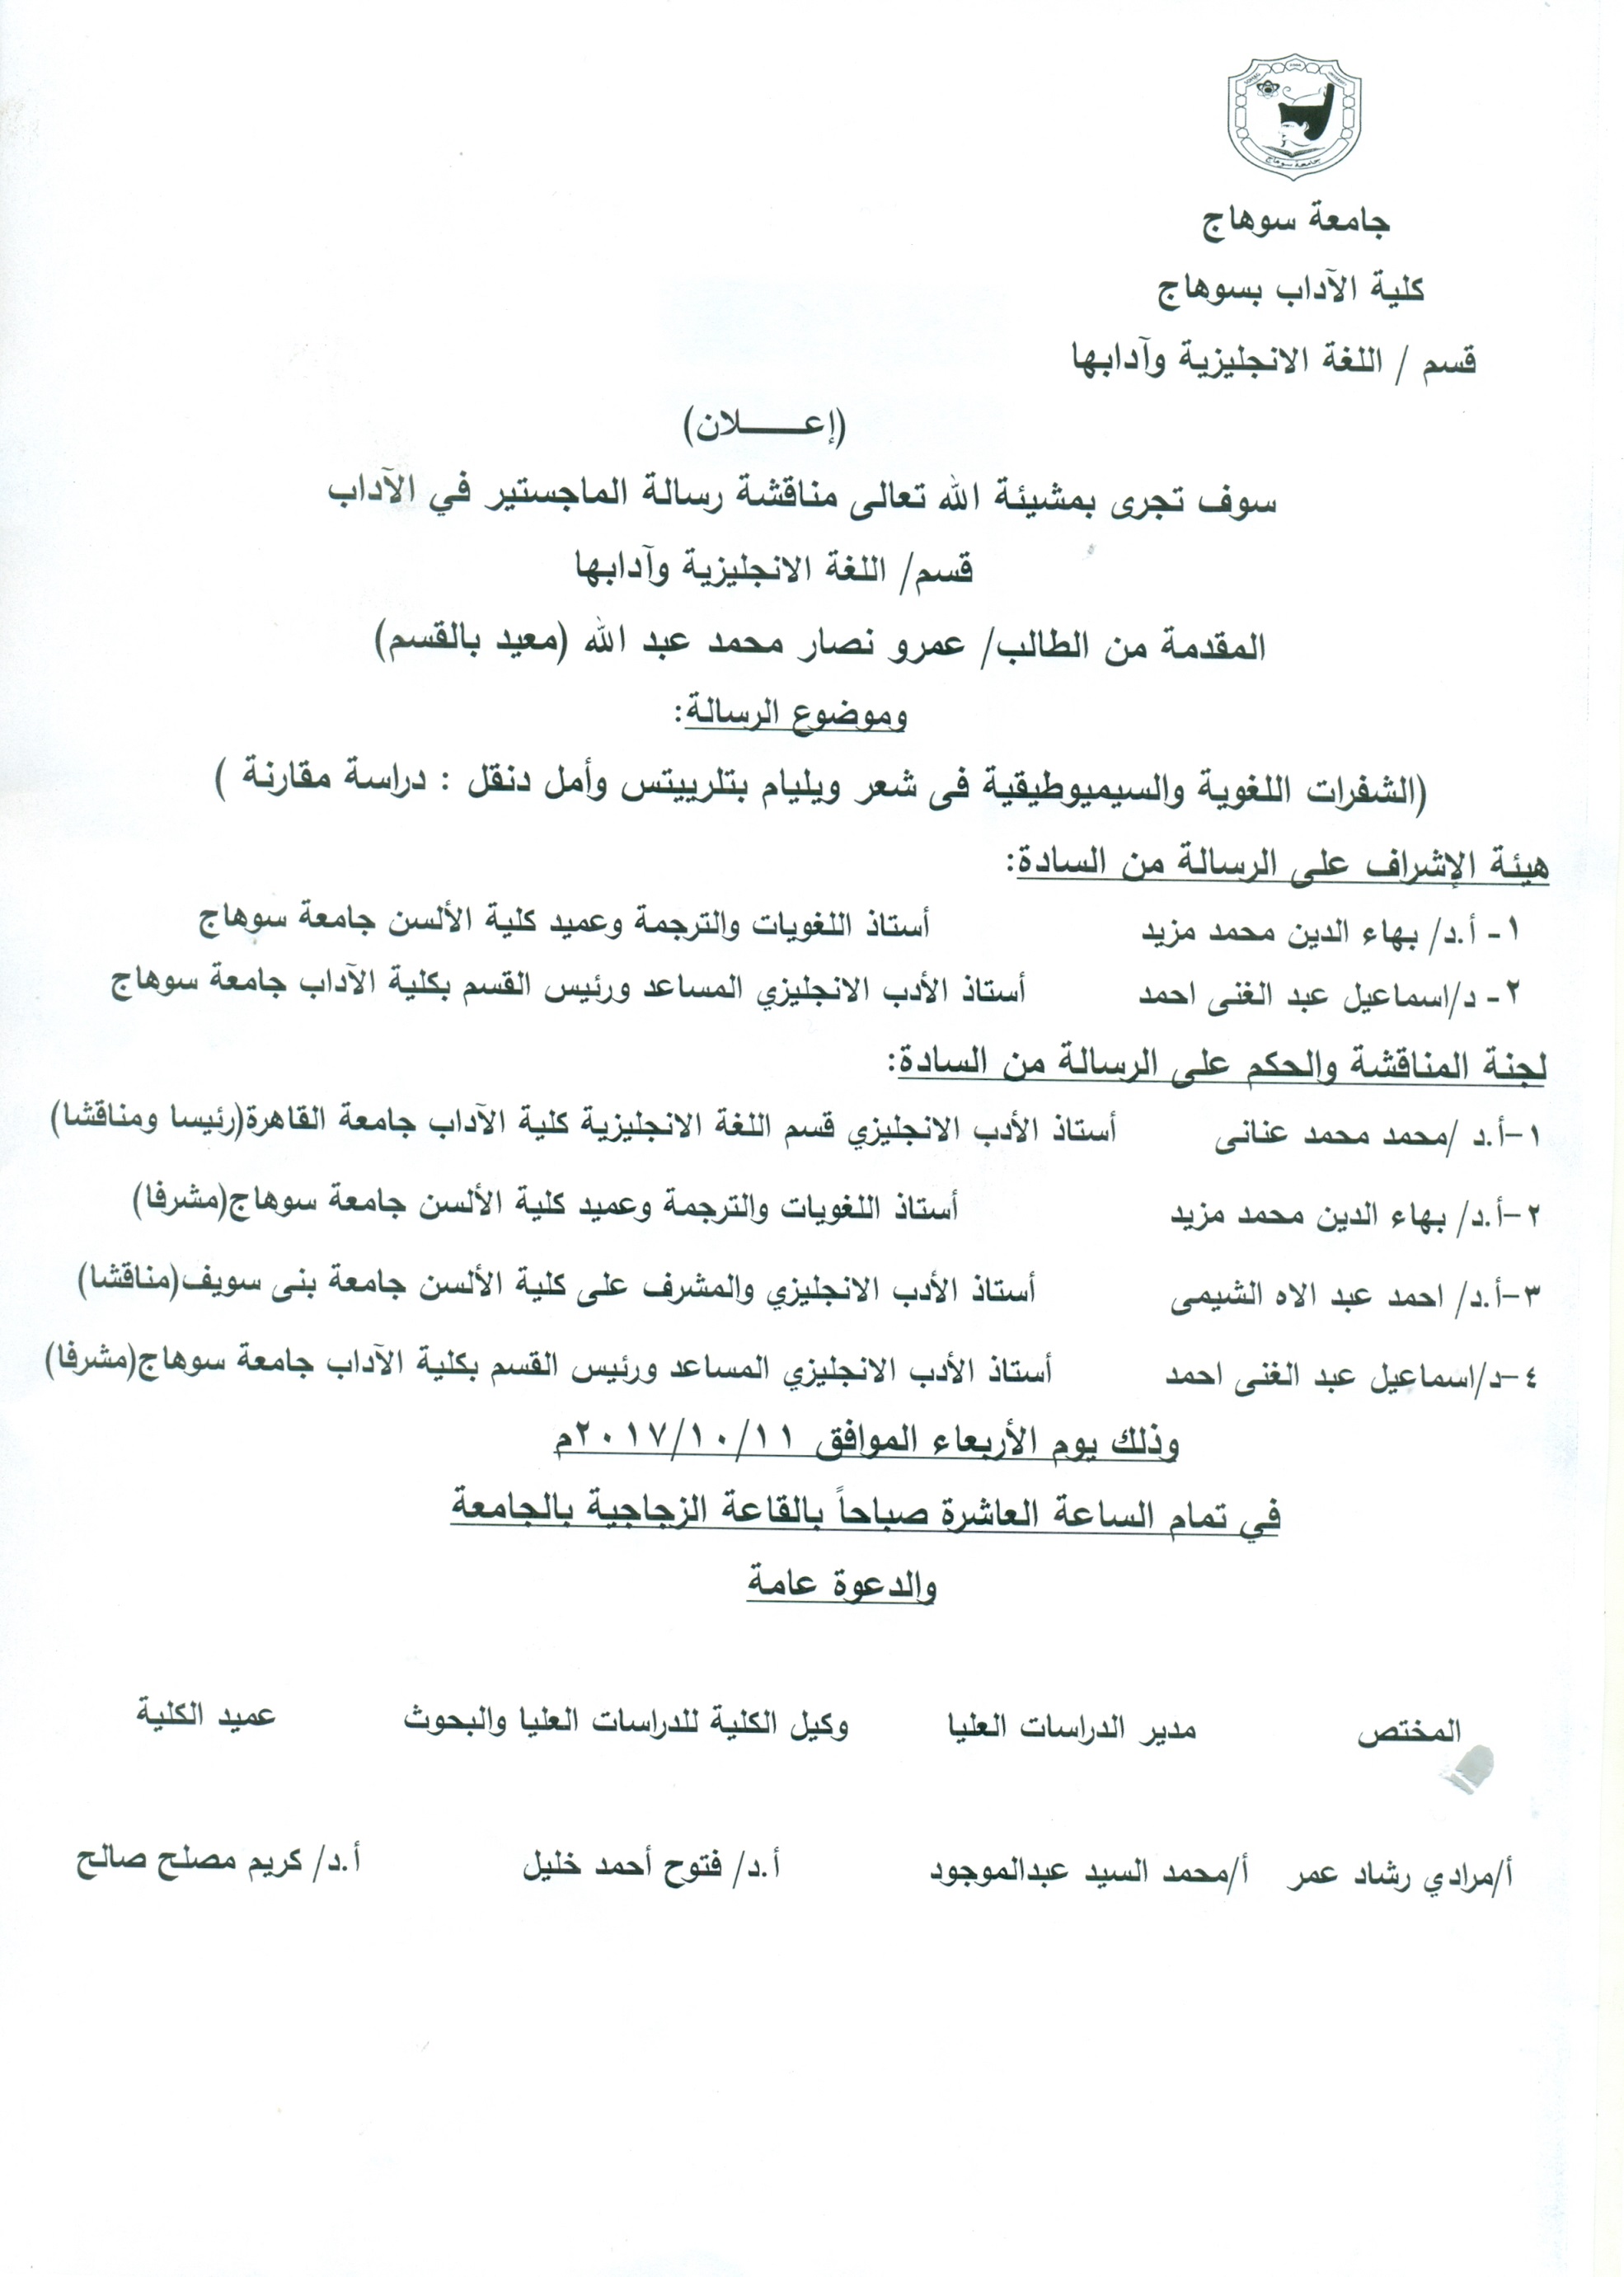 جامعة سوهاج
جامعة سوهاج
كلية الآداب بسوهاج
قسم / اللغة الانجليزية وآدابها
(إعـــــلان)
سوف تجرى بمشيئة الله تعالى مناقشة رسالة الماجستير في الآداب
قسم/ اللغة الانجليزية وآدابها
المقدمة من الطالب/ عمرو نصار محمد عبد الله (معيد بالقسم)
وموضوع الرسالة:
(الشفرات اللغوية والسيميوطيقية فى شعر ويليام بتلرييتس وأمل دنقل : دراسة مقارنة )
هيئة الإشراف على الرسالة من السادة:
١- أ.د/ بهاء الدين محمد مزيد أستاذ اللغويات والترجمة وعميد كلية الألسن جامعة سوهاج
٢- د/اسماعيل عبد الغنى احمد أستاذ الأدب الانجليزي المساعد ورئيس القسم بكلية الآداب جامعة سوهاج
لجنة المناقشة والحكم على الرسالة من السادة:
١-أ.د /محمد محمد عنانى أستاذ الأدب الانجليزي قسم اللغة الانجليزية كلية الآداب جامعة القاهرة(رئيسا ومناقشا)
٢-أ.د/ بهاء الدين محمد مزيد أستاذ اللغويات والترجمة وعميد كلية الألسن جامعة سوهاج(مشرفا)
٣-أ.د/ احمد عبد الاه الشيمى أستاذ الأدب الانجليزي والمشرف على كلية الألسن جامعة بنى سويف(مناقشا)
٤-د/اسماعيل عبد الغنى احمد أستاذ الأدب الانجليزي المساعد ورئيس القسم بكلية الآداب جامعة سوهاج(مشرفا)
وذلك يوم الأربعاء الموافق ٢٠١٧/١٠/١١م
في تمام الساعة العاشرة صباحاً بالقاعة الزجاجية بالجامعة
والدعوة عامة
المختص مدير الدراسات العليا وكيل الكلية للدراسات العليا والبحوث عميد الكلية
أ/مرادي رشاد عمر أ/محمد السيد عبدالموجود أ.د/ فتوح أحمد خليل أ.د/ كريم مصلح صالح